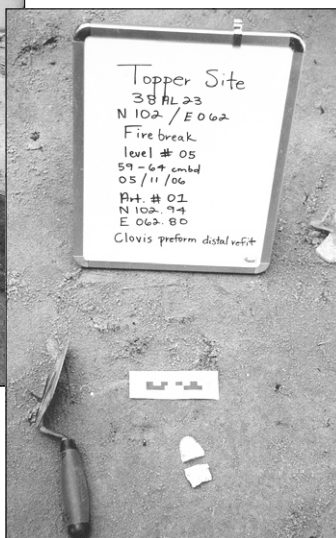 Topper Site
38AL23
N 102 / E 062
Firebreak
level # 05
59-64 cmbd
05/11/06
Art. # 01
N 102.94
E 062.80
Clovis preform distal refit